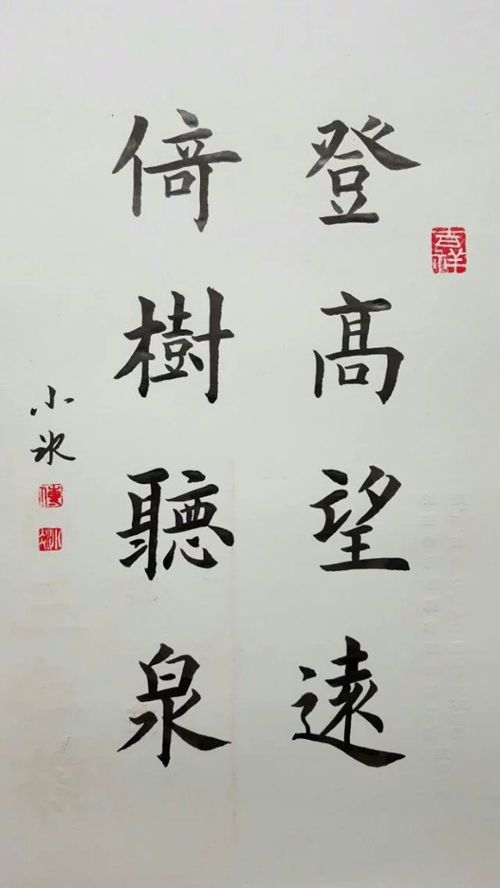 登髙望遠
倚樹聽泉
小冰